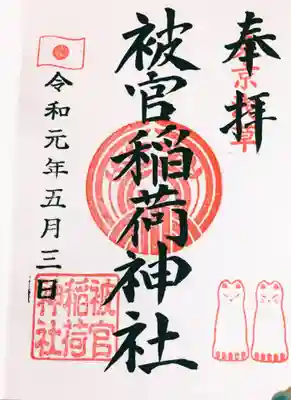 奉拝
東京浅草
被官稲荷神社
令和元年五月三日
被官
稲荷
神社